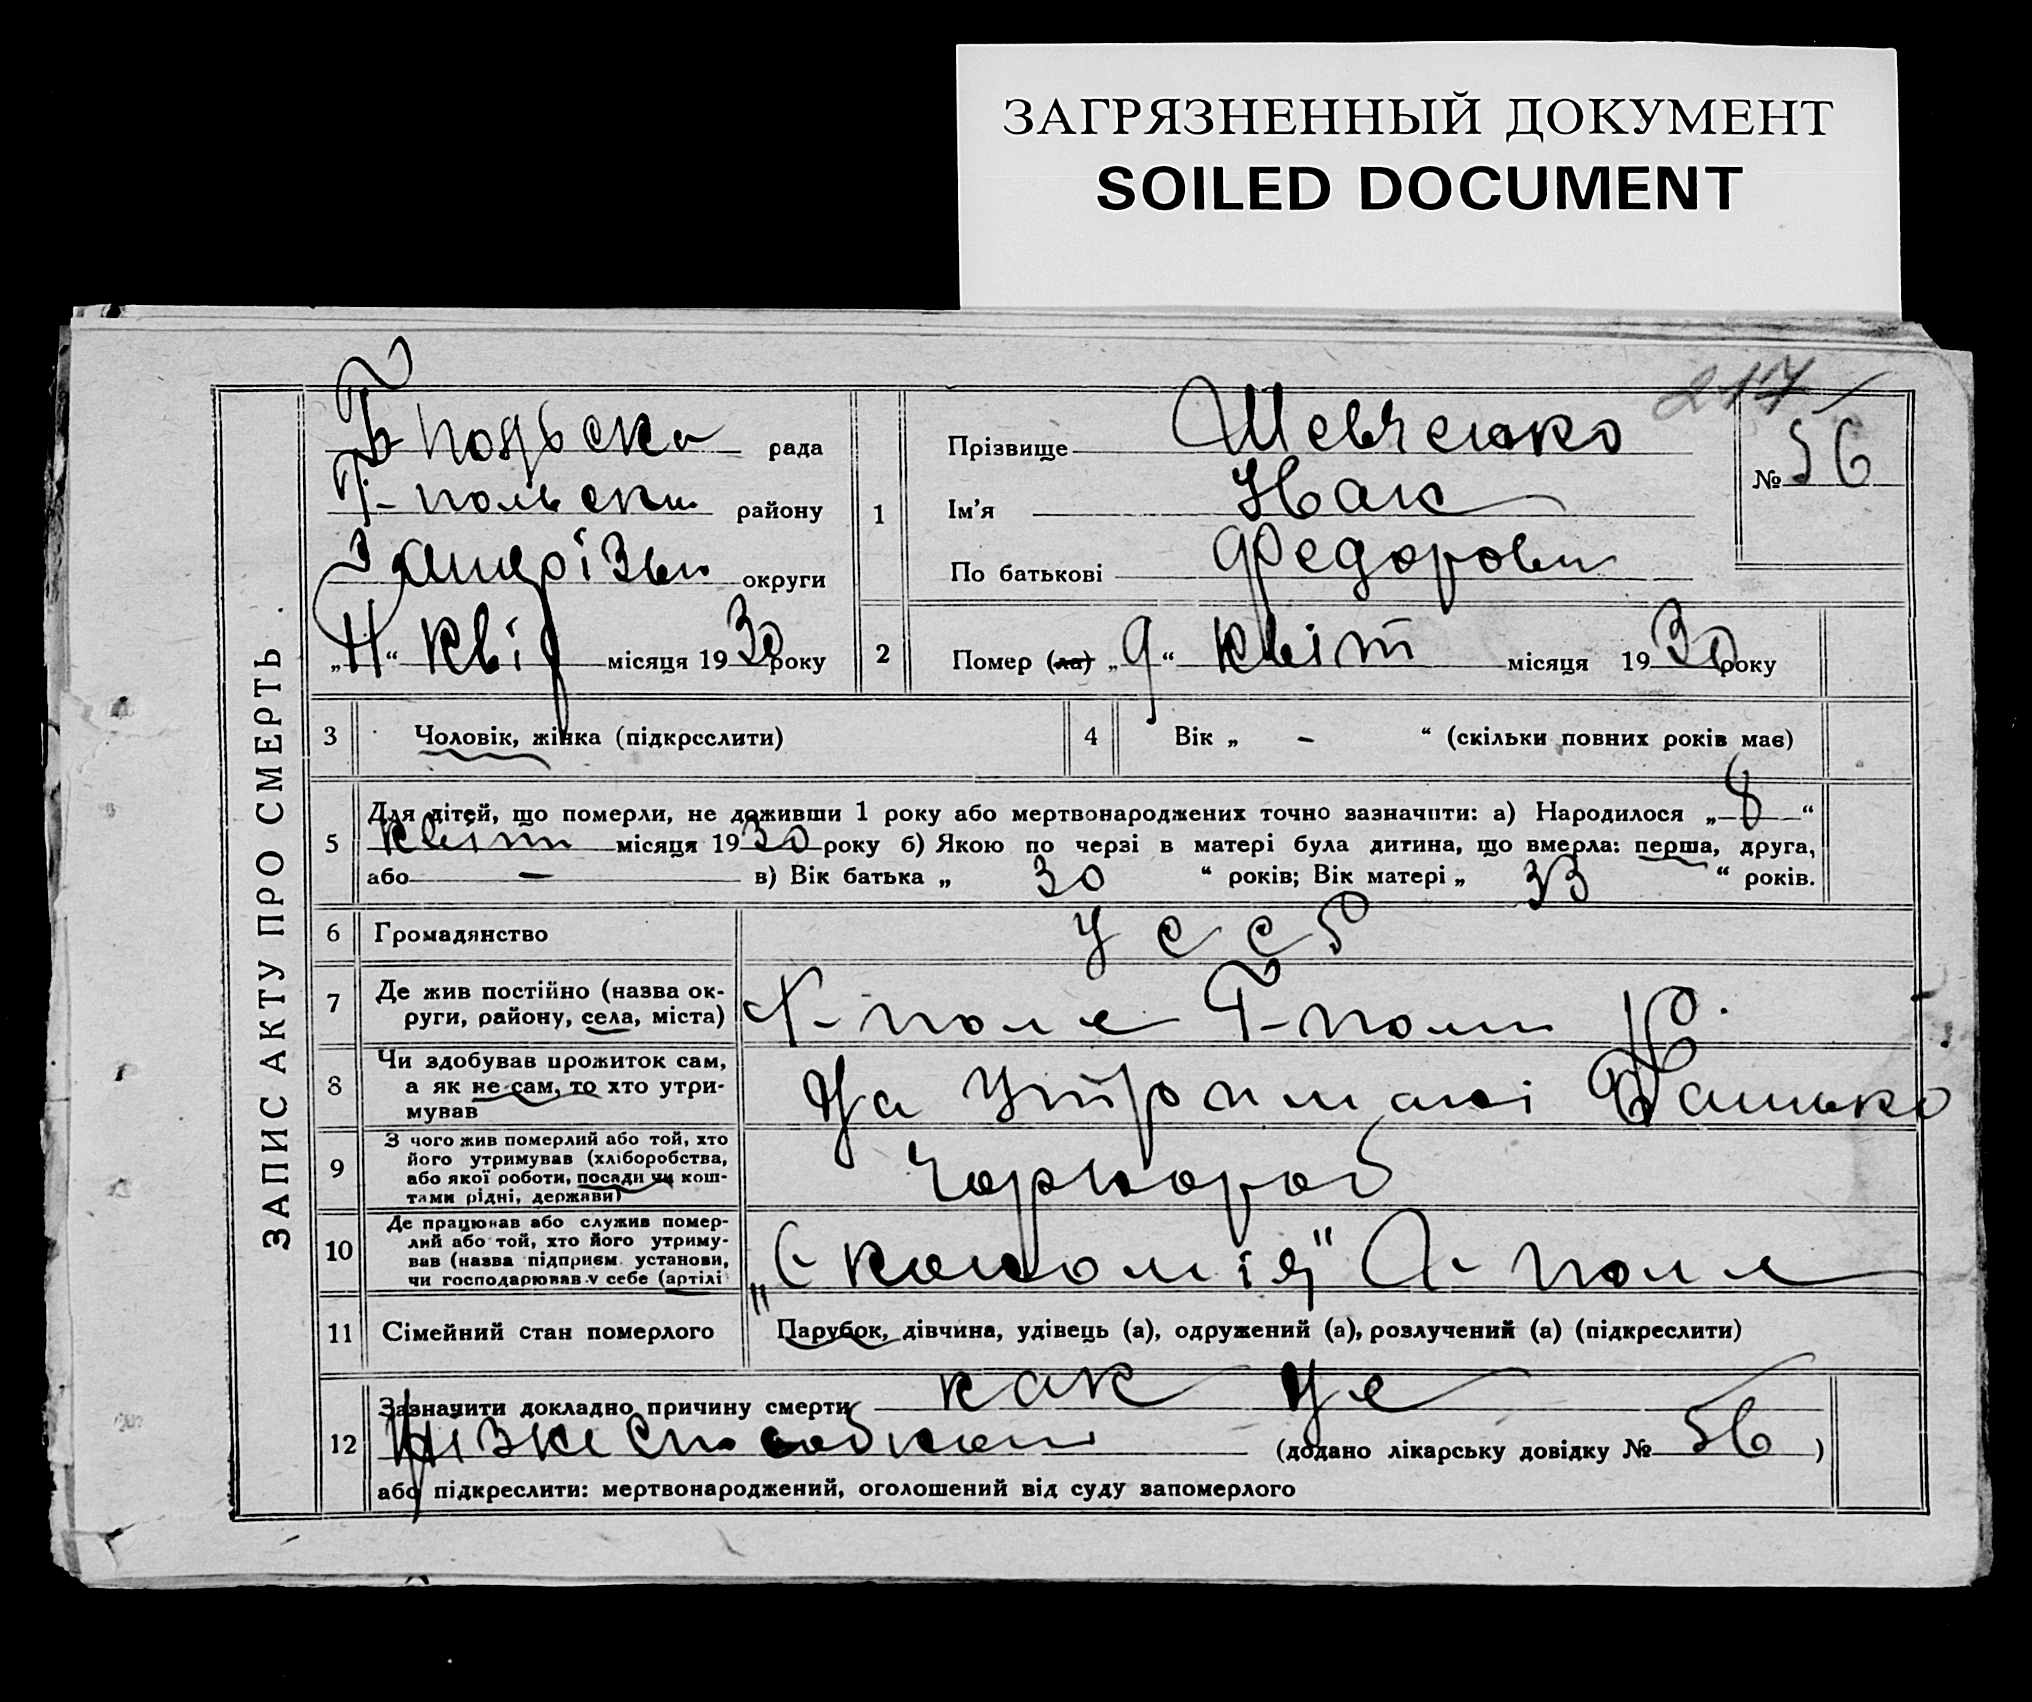 ЗАГРЯЗНЕННЫЙ ДОКУМЕНТ
SOILED DOCUMENT
217
ЗАПИС АКТУ ПРО СМЕРТЬ.
рада
Г-польськ району
округи
„11“ квіт місяця 1930 року
1
Прізвище Шевченко
Ім'я Іван
По батькові Федорови
№ 56
2
Помер (ла) „9“ квіт місяця 1930 року
3 Чоловік, жінка (підкреслити)
4 Вік „ - “ (скільки повних років має)
5
Для дітей, що померли, не доживши 1 року або мертвонароджених точно зазначити: а) Народилося „8“
квіт місяця 1930 року б) Якою по черзі в матері була дитина, що вмерла: перша, друга,
або - в) Вік батька „ 30 “ років; Вік матері „ 33 “ років.
6 Громадянство УССР
7 Де жив постійно (назва ок-
руги, району, села, міста)
Г-поле Г-поль
8 Чи здобував прожиток сам,
а як не сам, то хто утри-
мував
На утримані Батько
9 З чого жив померлий або той, хто
його утримував (хліборобства,
або якої роботи, посади чи кош-
тами рідні, держави)
Чорнороб
10 Де працював або служив помер-
лий або той, хто його утриму-
вав (назва підприєм. установи,
чи господарював у себе (артілі
„Економія“ Г-поле
11 Сімейний стан померлого Парубок, дівчина, удівець (а), одружений (а), розлучений (а) (підкреслити)
12
Зазначити докладно причину смерти
(додано лікарську довідку № 56)
або підкреслити: мертвонароджений, оголошений від суду запомерлого